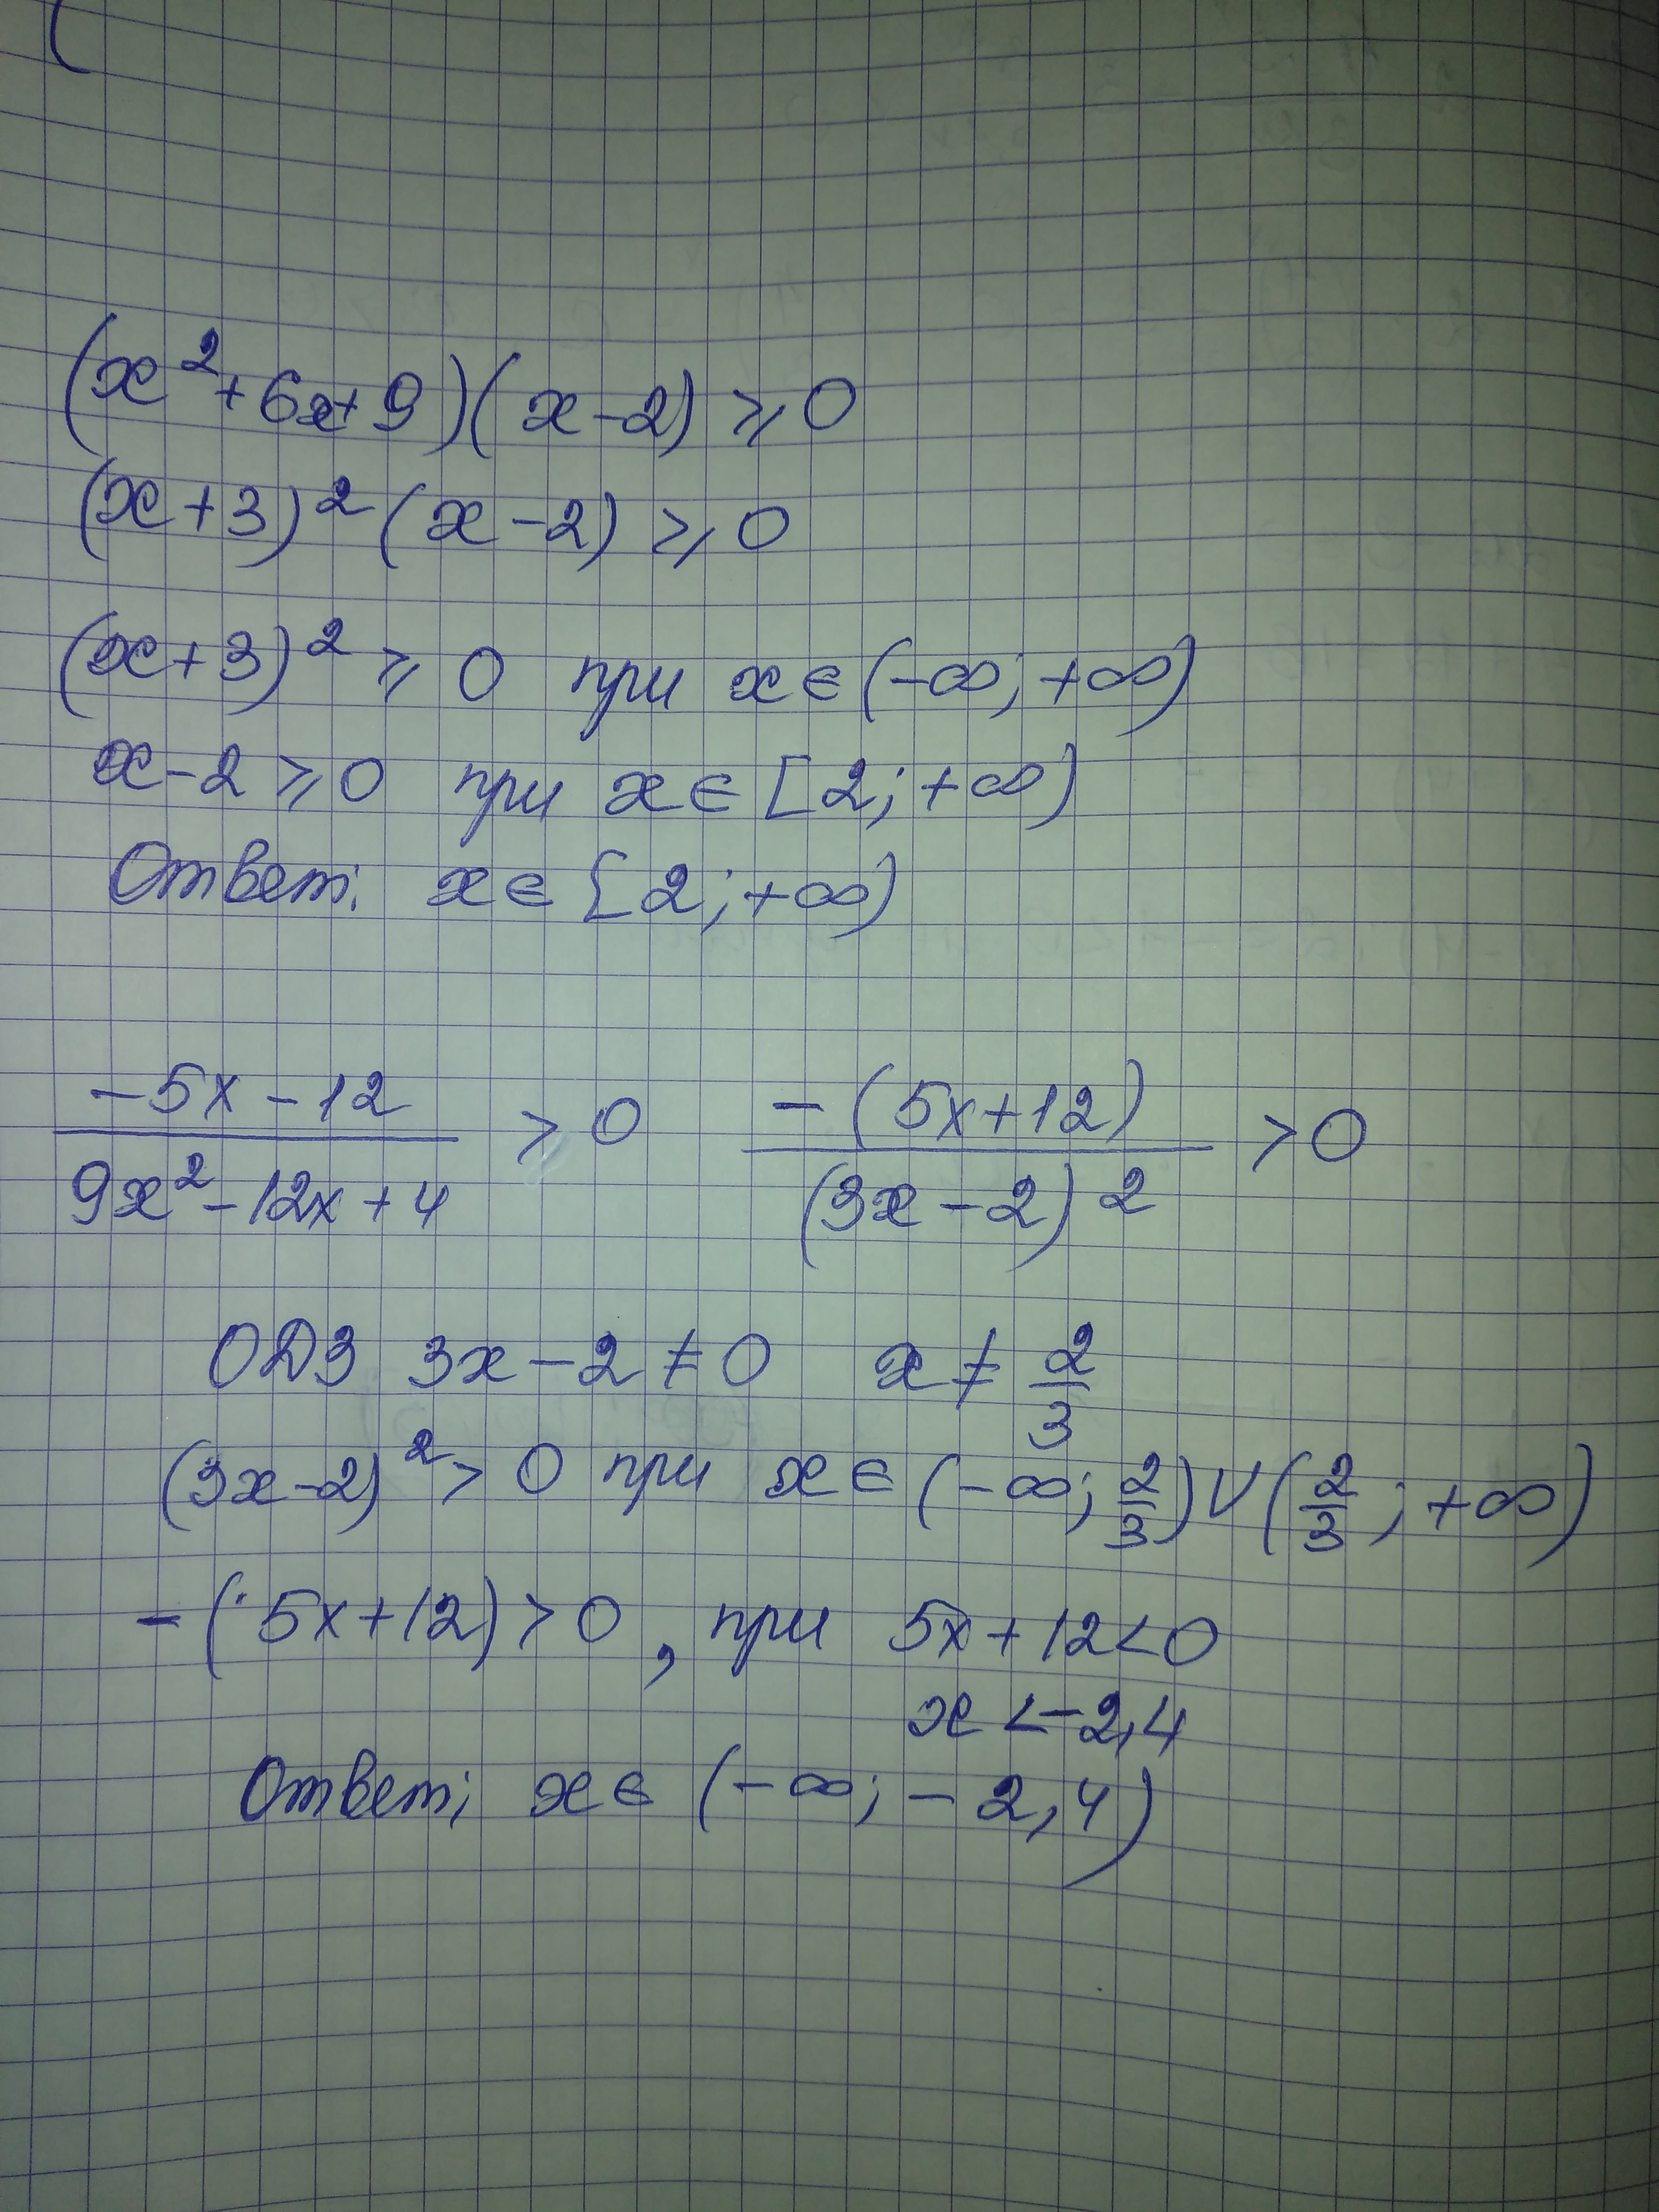 (x² + 6x + 9)(x - 2) ⩾ 0
(x + 3)² (x - 2) ⩾ 0
(x + 3)² ⩾ 0 при x ∈ (-∞; +∞)
x - 2 ⩾ 0 при x ∈ [2; +∞)
Ответ: x ∈ [2; +∞)
(-5x - 12)/(9x² - 12x + 4) > 0 (-(5x + 12))/((3x - 2)²) > 0
ОДЗ 3x - 2 ≠ 0 x ≠ 2/3
(3x - 2)² > 0 при x ∈ (-∞; 2/3) ∪ (2/3; +∞)
-(5x + 12) > 0, при 5x + 12 < 0
x < -2,4
Ответ: x ∈ (-∞; -2,4)